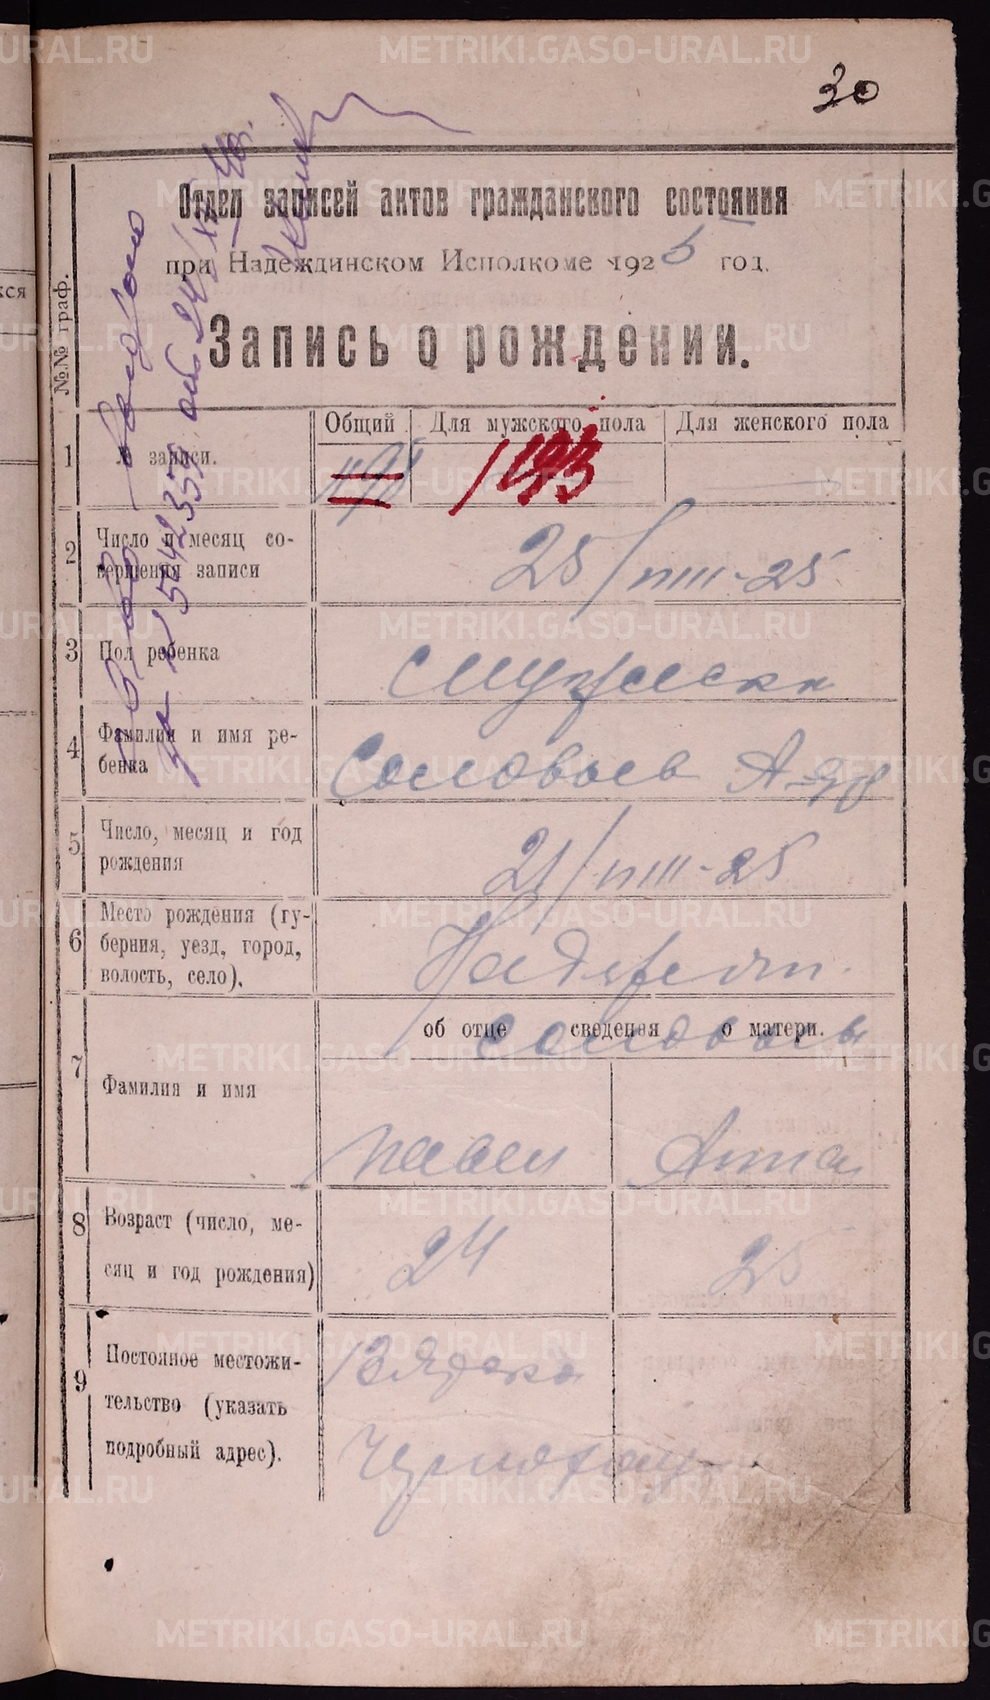 30
Отдел записей актов гражданского состояния
при Надеждинском Исполкоме 1925 год.
Запись о рождении.
№№ граф.
Общий Для мужского пола Для женского пола
1 № записи. 193
2 Число и месяц со-
вершения записи
25/VIII-25
3 Пол ребенка
4 Фамилия и имя ре-
бенка
Соловьев А-др
5 Число, месяц и год
рождения
21/VIII-25
6 Место рождения (гу-
берния, уезд, город,
волость, село).
об отце сведения о матери.
Соловьевы
7 Фамилия и имя
Павел Анна
8 Возраст (число, ме-
сяц и год рождения)
24 25
9 Постояное местожи-
тельство (указать
подробный адрес).
METRIKI.GASO-URAL.RU